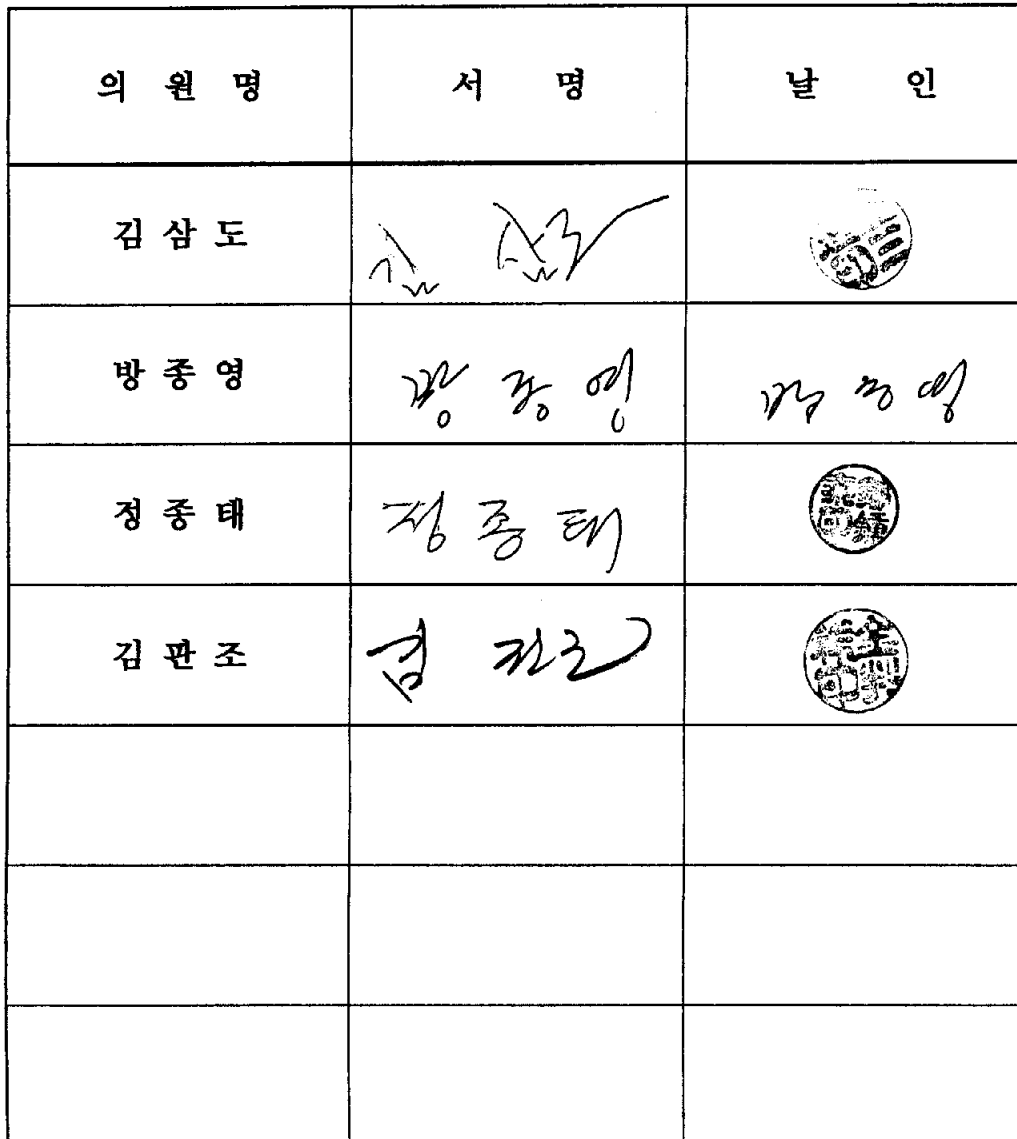 의 원 명 서 명 날 인
김 삼 도 김 삼도
방 종 영 방 종 영 방 종 영
정 종 태 정 종 태
김 판 조 김 판조